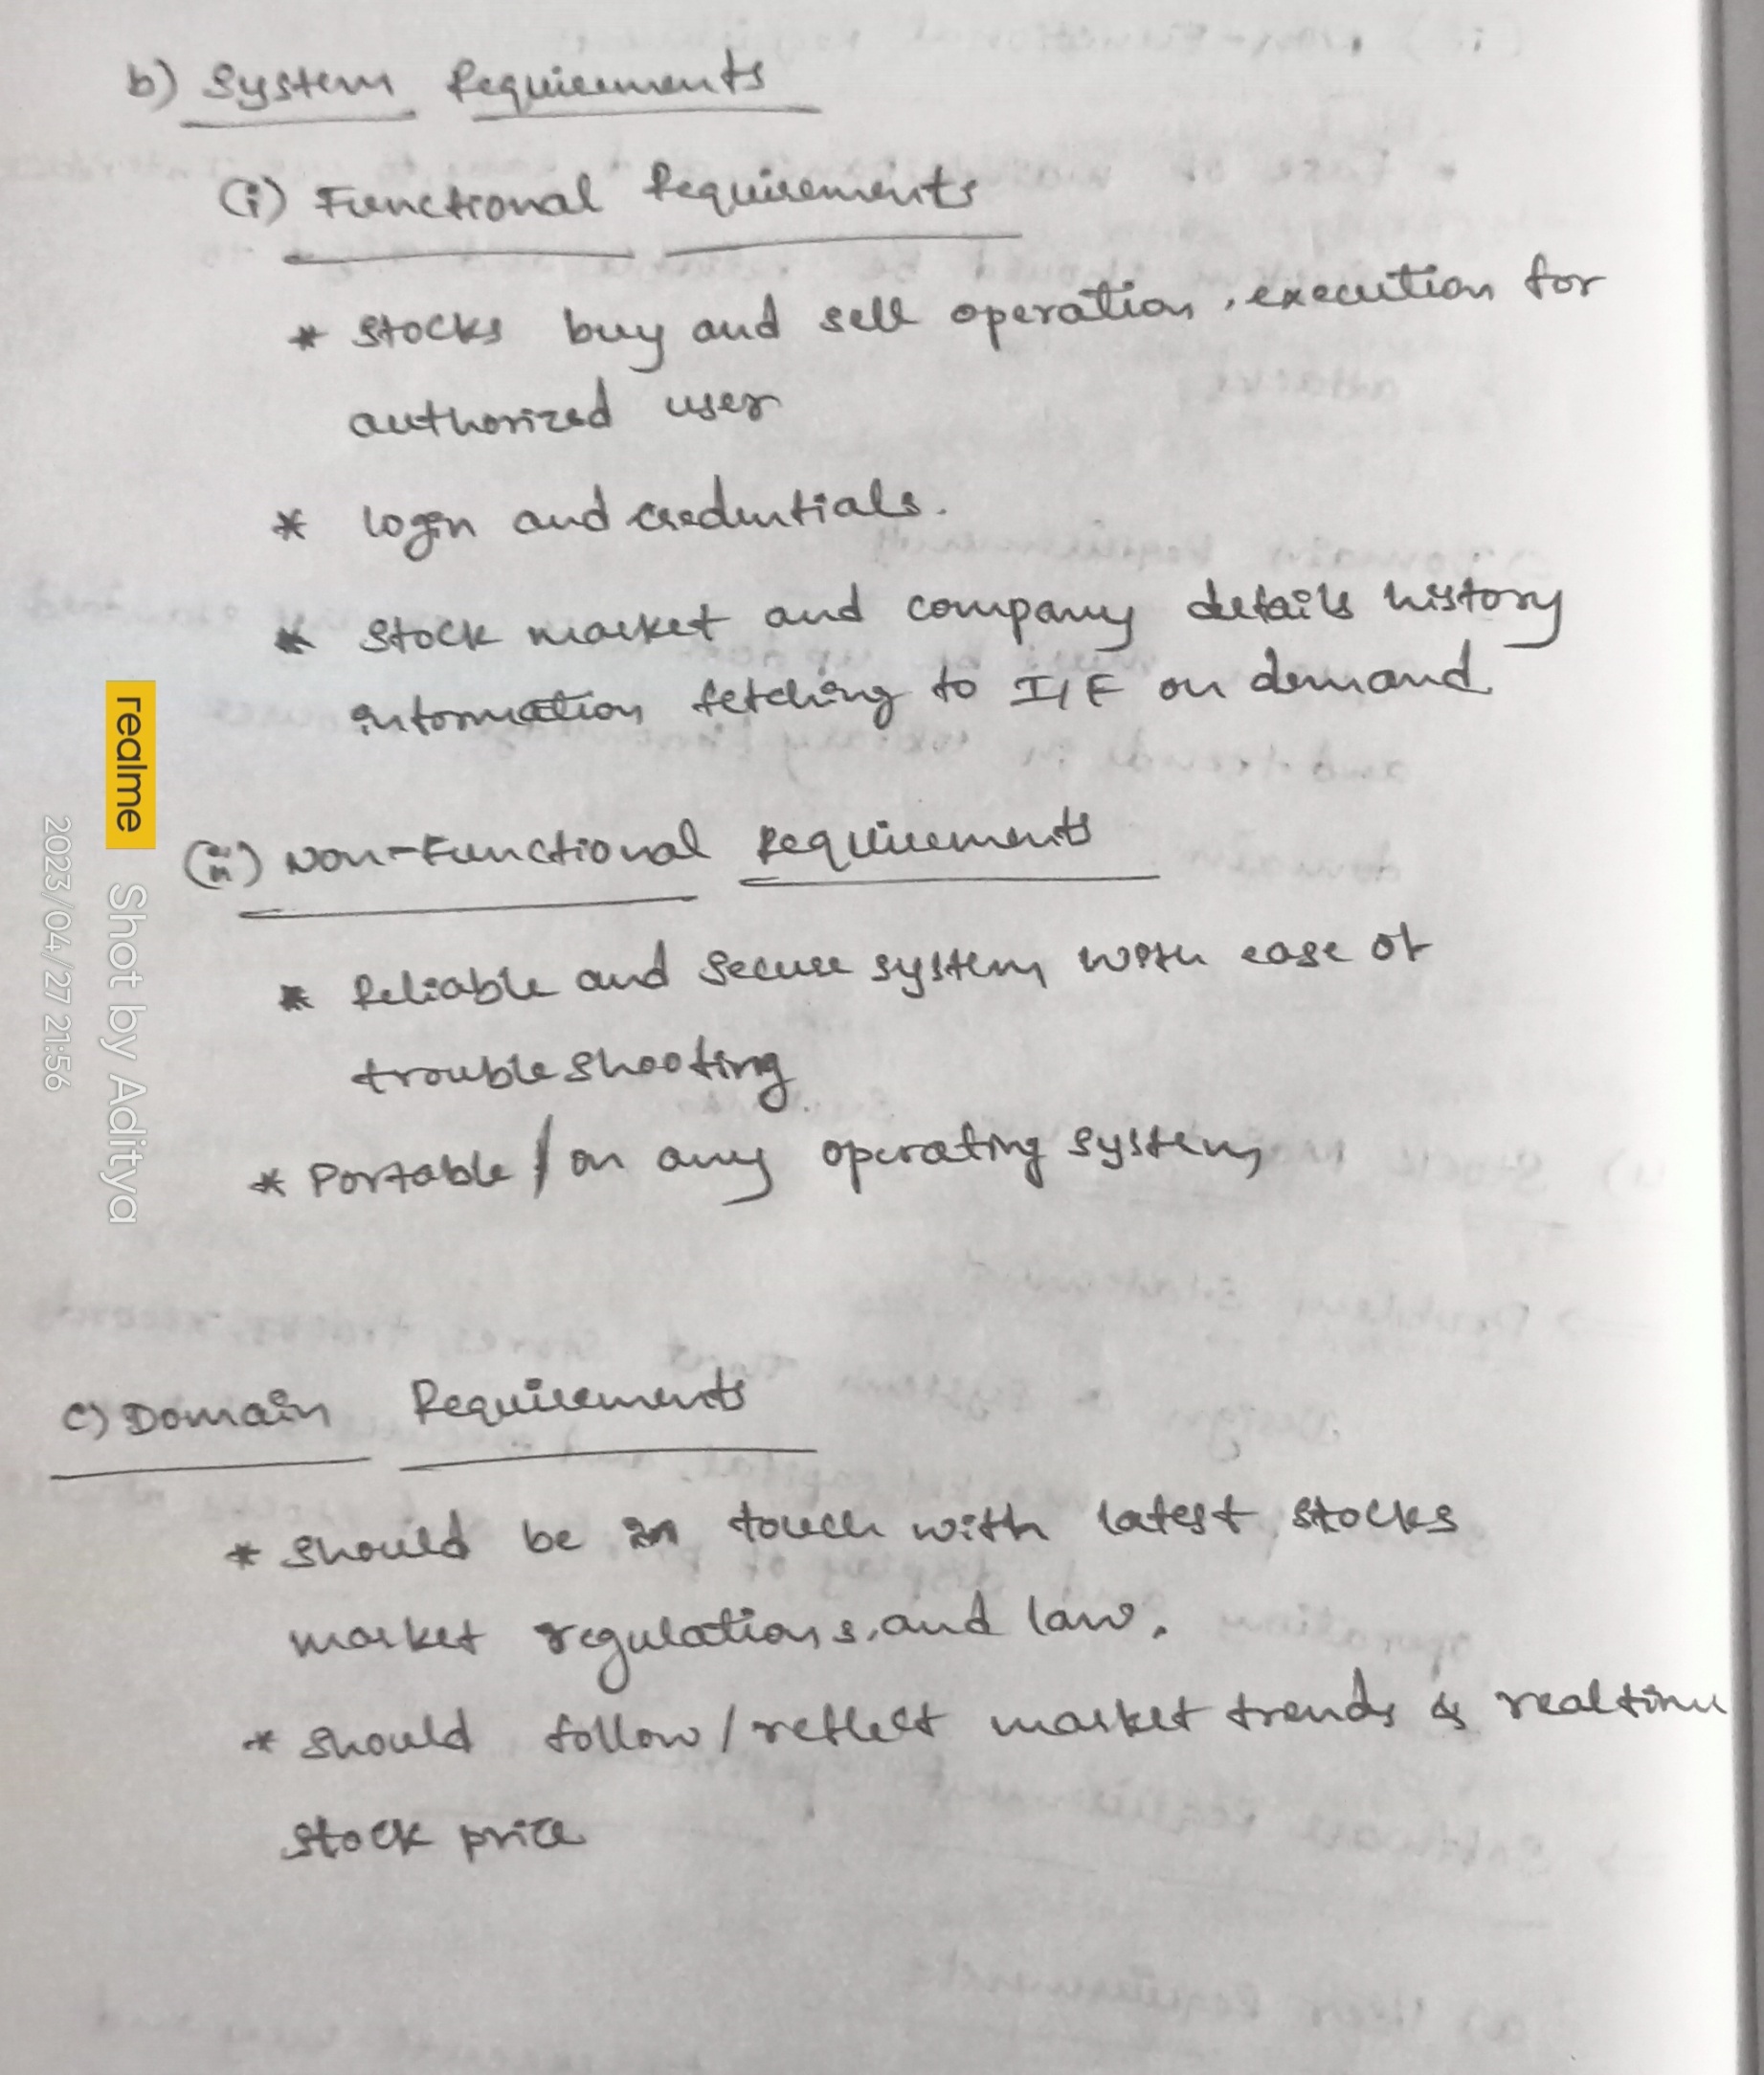 b) System Requirements
(i) Functional Requirements
* Stocks buy and sell operation, execution for
authorized user
* login and credentials.
* Stock market and company details history
information fetching to I/F on demand
(ii) Non-Functional Requirements
* Reliable and Secure system with ease of
troubleshooting
* Portable / on any operating system
c) Domain Requirements
* Should be in touch with latest stocks
market regulations and law.
* Should follow / reflect market trends & realtime
stock price
realme Shot by Aditya
2023/04/27 21:56